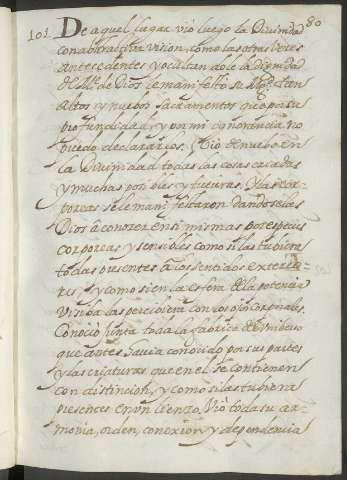 101
80
De aquel lugar vió luego la Divinidad
con abstractiva vision, como las otras veces
antecedentes y ocultandole la dignidad
de Mᵉ. de Dios le manifestó su Altᵃ. tan
altos y nuebos Sacramentos que por su
profundidad, y por mi ignorancia no
puedo declararlos. Vió de nuebo en
la Divinidad todas las cosas criadas
y muchas posibles y futuras. Y las cor-
poreas se le manifestaron dandoselas
Dios á conocer en si mismas por especies
corporeas y sensibles como si las tubiera
todas presentes á los sentidos exterio-
res y como si en la esfera de la potencia
visiva las percibiera con los ojos corporales.
Conoció junta toda la fabrica del universo
que antes havia conocido por sus partes
y las criaturas que en el se contienen
con distincion, y como si las tubiera
presentes en un lienzo. Vió toda su ar-
monia, orden, conexion y dependencia